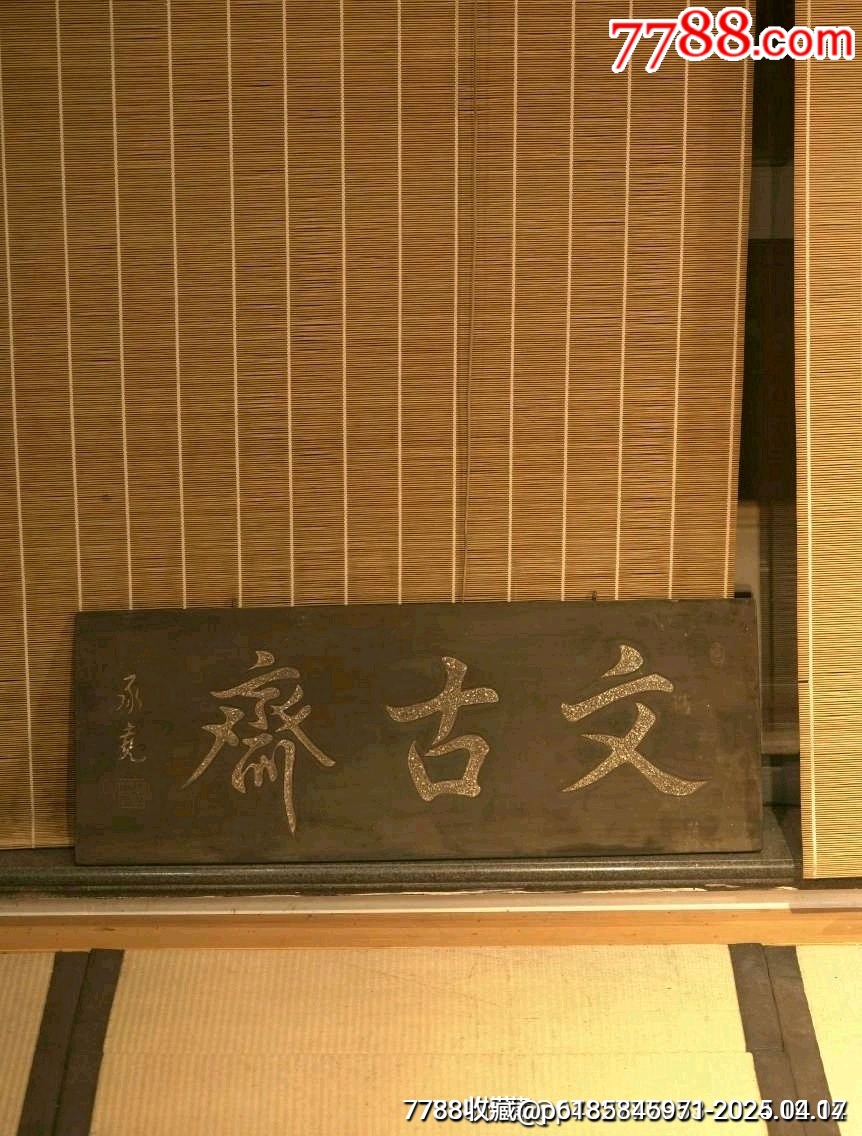 7788.com
文古齋
承堯
7788收藏@p6185845971-2025.04.04